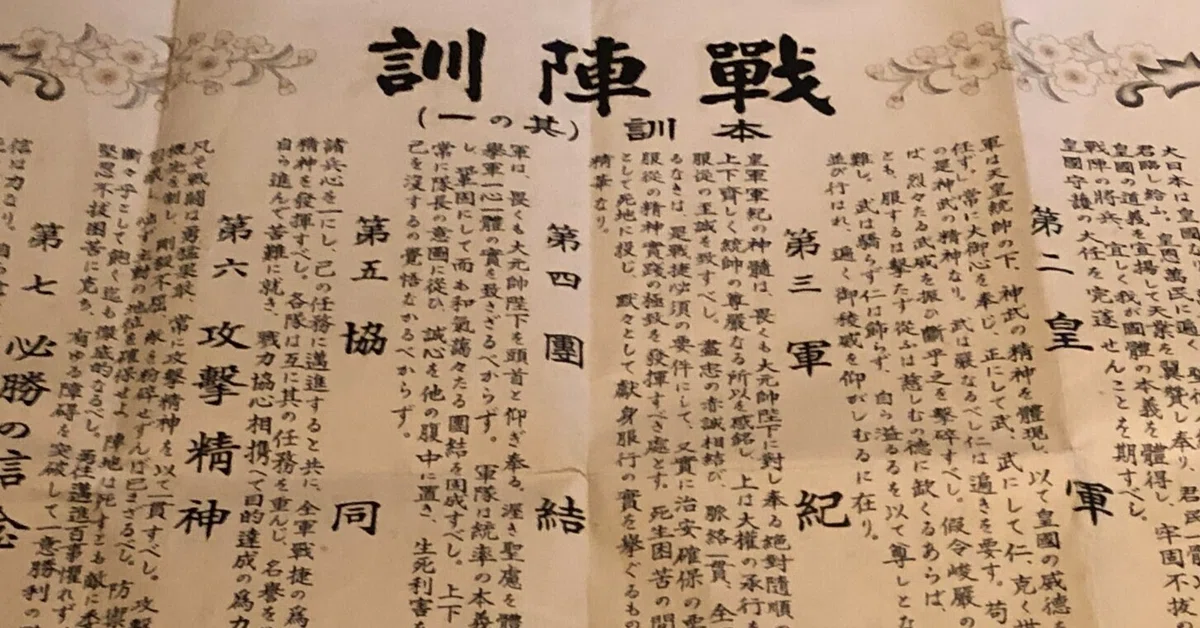 戰陣訓
本訓(其の一)
大日本は皇國なり。
君臨し給ふ。皇恩萬民に遍く、
皇國の道義を宣揚して天業を翼贊し奉り、
戰陣の將兵、宜しく我が國體の本義を體得し、牢固不拔の
皇國守護の大任を完遂せんことを期すべし。
第二 皇軍
軍は天皇統帥の下、神武の精神を體現し、以て皇國の威德を
任ず。常に大御心を奉じ、正にして武、武にして仁、克く世
の是神武の精神なり。武は嚴なるべし仁は遍きを要す。苟
ば、烈々たる武威を振ひ斷乎之を擊碎すべし。假令峻嚴の
とも、服するは擊たず從ふは慈しむの德に缺くるあらば、
難し。武は驕らず仁は飾らず、自ら溢るるを以て尊しとな
並び行はれ、遍く御稜威を仰がしむるに在り。
第三 軍紀
皇軍軍紀の神髓は、畏くも大元帥陛下に對し奉る絶對隨順
上下齊しく統帥の尊嚴なる所以を感銘し、上は大權の承行を
服從の至誠を致すべし。盡忠の赤誠相結び、脈絡一貫、全
るなきは、是戰捷必須の要件にして、又實に治安確保の要
服從の精神實踐の極致を發揮すべき處とす。死生困苦の間
として死地に投じ、默々として獻身服行の實を擧ぐるもの
精華なり。
第四 團結
軍は、畏くも大元帥陛下を頭首と仰ぎ奉る。渥き聖慮を體
擧軍一心一體の實を致さざるべからず。軍隊は統率の本義
し、鞏固にして而も和氣藹々たる團結を固成すべし。上下
常に隊長の意圖に從ひ、誠心を他の腹中に置き、生死利害を
己を沒するの覺悟なかるべからず。
第五 協同
諸兵心を一にし、己の任務に邁進すると共に、全軍戰捷の爲
精神を發揮すべし。各隊は互に其の任務を重んじ、名譽を
自ら進んで苦難に就き、戰力協心相携へて目的達成の爲力
第六 攻擊精神
凡そ戰鬪は勇猛果敢、常に攻擊精神を以て一貫すべし。攻擊
機先を制し、剛毅不屈、敵を粉碎せずんば已まざるべし。防禦
必ず主動の地位を確保せよ。陣地は死すとも敵に委
斷乎として飽く迄も徹底的なるべし。勇往邁進百事懼れず
堅忍不拔困苦に克ち、有ゆる障碍を突破して一意勝利の
第七 必勝の信念
信は力なり。自ら